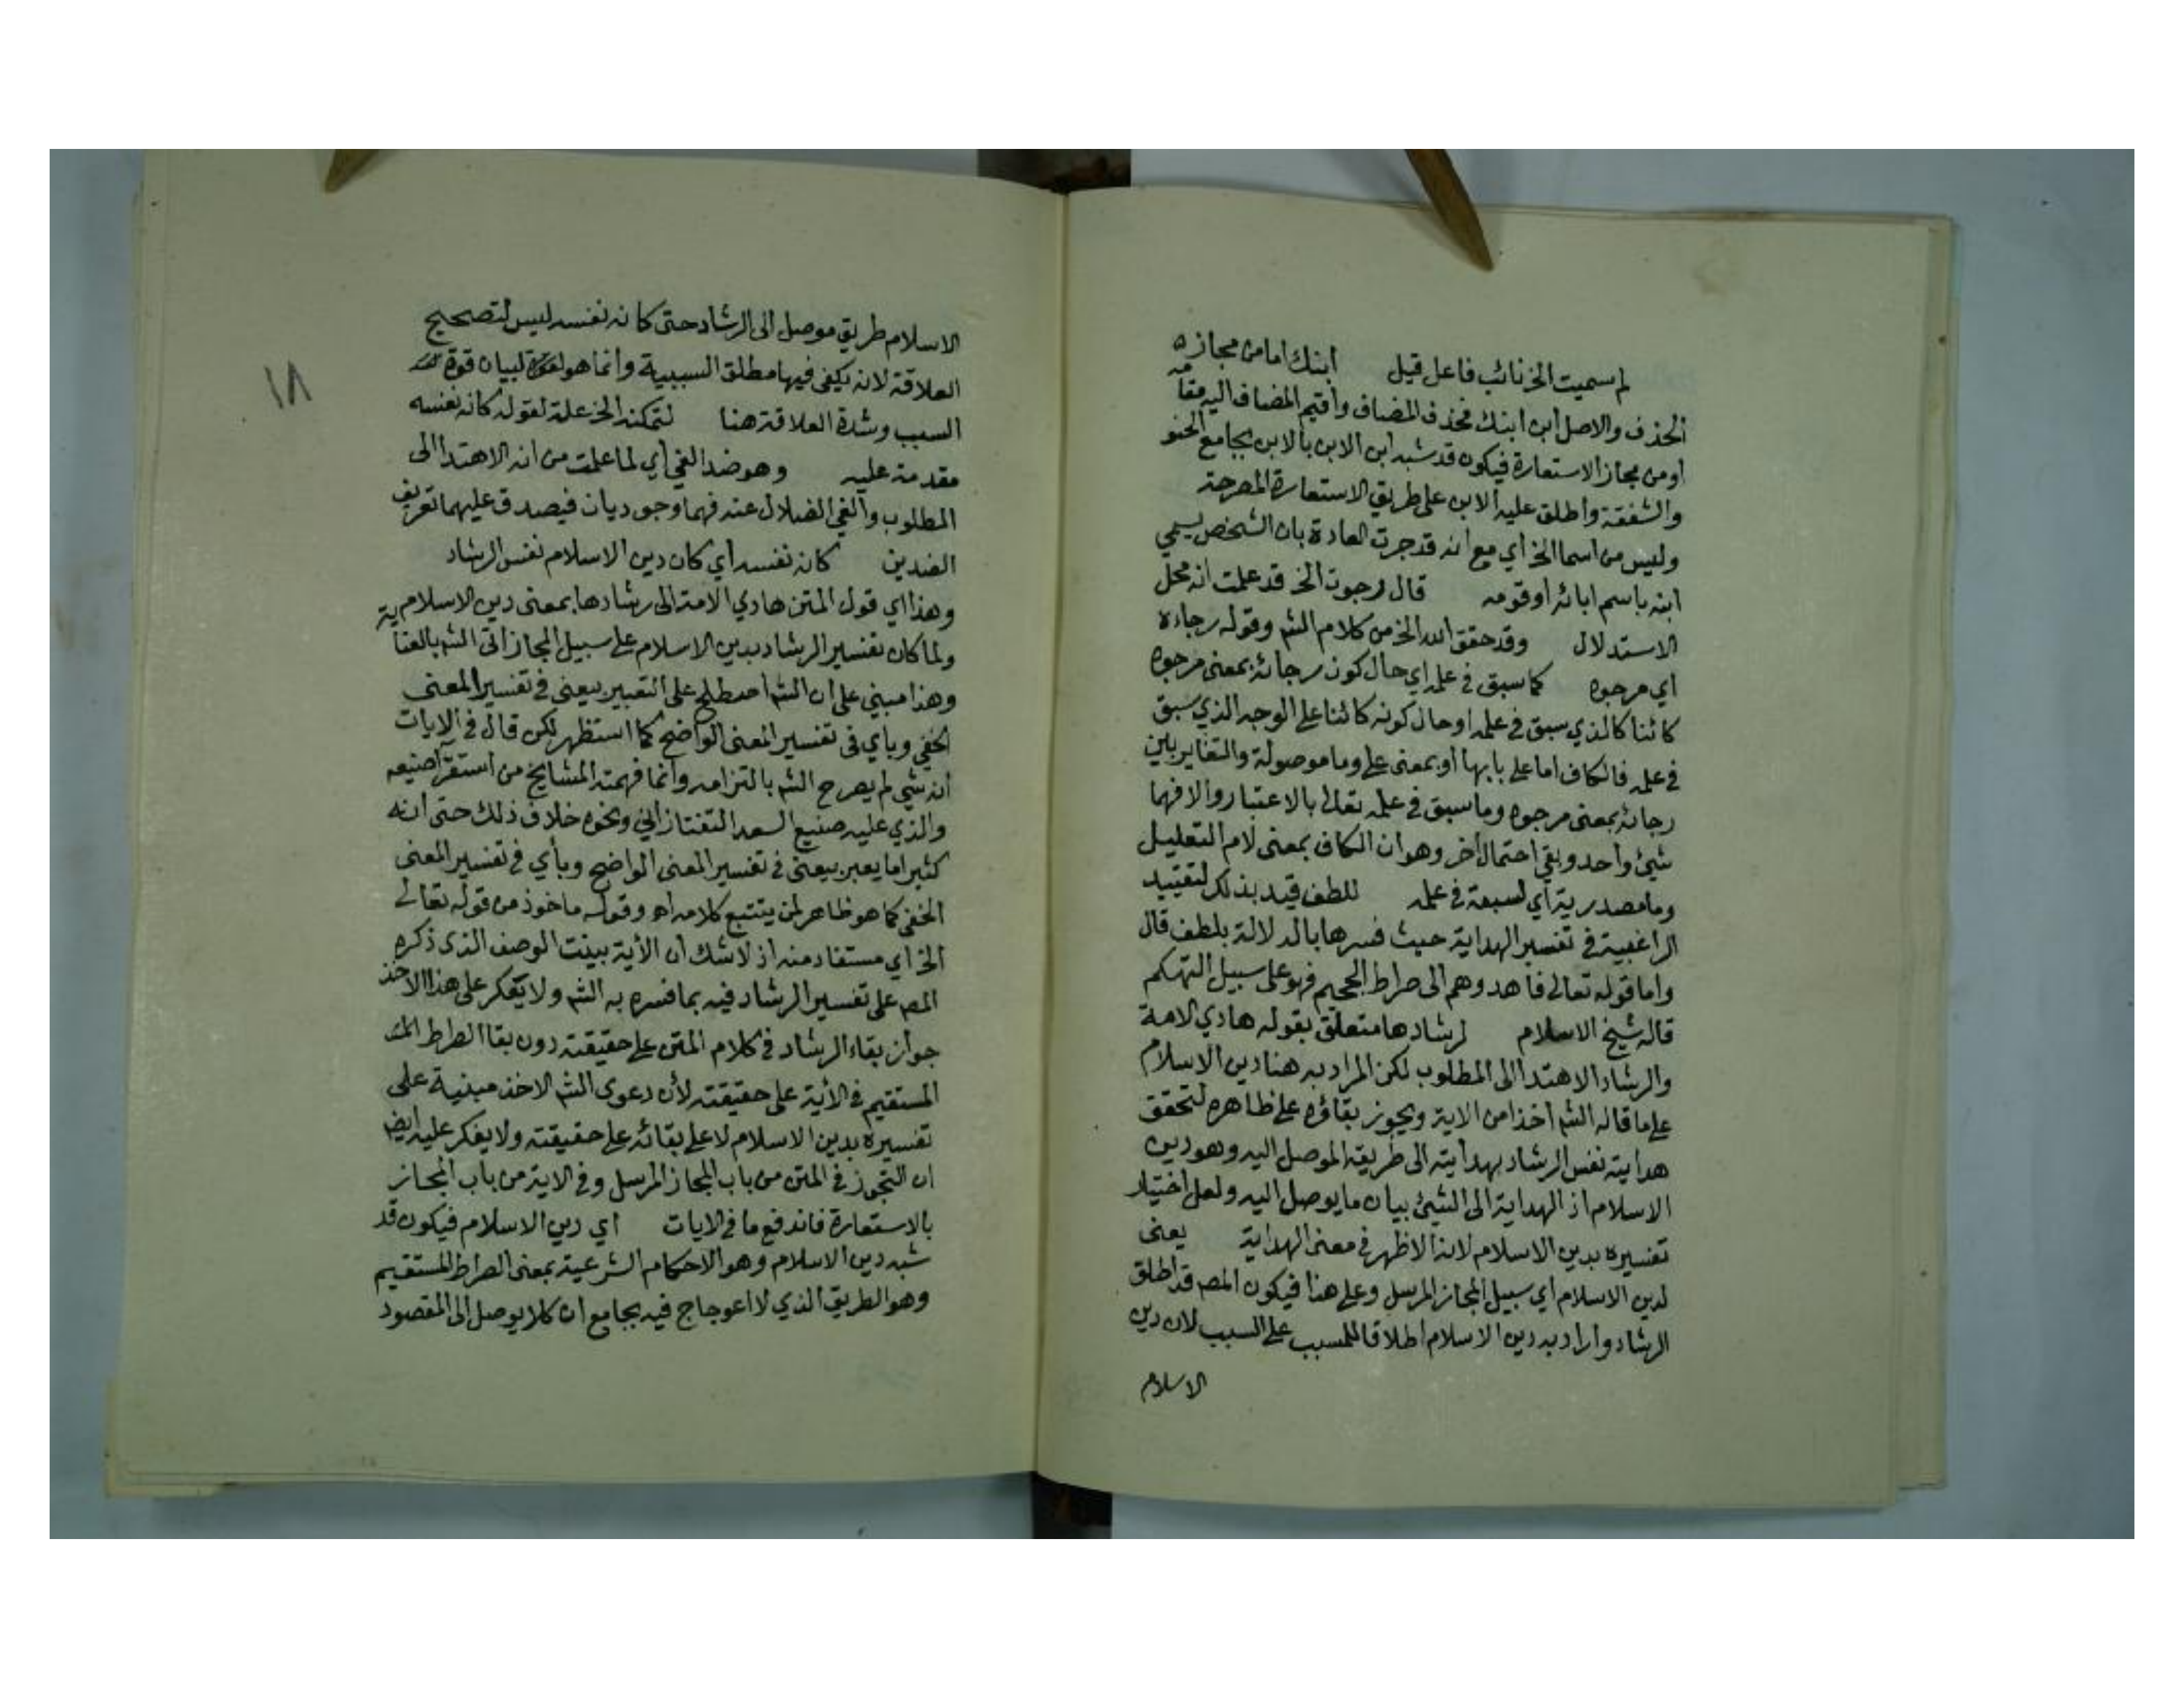 لم سميت الخ نائب فاعل قيل ابنك اما من مجازه
الحذف والاصل ابن ابنك فحذف المضاف واقيم المضاف اليه مقامه
او من مجاز الاستعارة فيكون قد شبه ابن الابن بالابن بجامع الحنو
والشفقة واطلق عليه الابن على طريق الاستعارة المصرحة
وليس من اسما الخ أي مع انه قد جرت العادة بان الشخص يسمي
ابنه باسم ابائه او قومه قال رجوت الخ قد علمت انه محل
الاستدلال وقد حقق الله الخ من كلام الشم وقوله رجاءه
أي مرجوه كما سبق في علمه اي حال كون رجائه بمعنى مرجوه
كائنا كالذي سبق في علمه او حال كونه كائنا على الوجه الذي سبق
في علمه فالكاف اما على بابها أو بمعنى على وما موصولة والتغاير بين
رجائه بمعنى مرجوه وما سبق في علمه تعالى بالاعتبار والا فهما
شيئ واحد وبقي احتمال اخر وهو ان الكاف بمعنى لام التعليل
وما مصدرية أي لسبقه في علمه للطف قيد بذلك لتقييد
الراغبية في تفسير الهداية حيث فسرها بالدلالة بلطف قال
واما قوله تعالى فاهدوهم الى صراط الجحيم فهو على سبيل التهكم
قاله شيخ الاسلام لرشادها متعلق بقوله هادي الامة
والرشاد الاهتدا الى المطلوب لكن المراد به هنا دين الاسلام
على ما قاله الشم أخذا من الاية ويجوز بقاؤه على ظاهره لتحقق
هدايته نفس الرشاد بهدايته الى طريقه الموصل اليه وهو دين
الاسلام اذ الهداية الى الشيئ بيان ما يوصل اليه ولعل اختيار
تفسيره بدين الاسلام لانه الاظهر في معنى الهداية يعنى
لدين الاسلام اي سبيل المجاز المرسل وعلى هذا فيكون المصم قد اطلق
الرشاد واراد به دين الاسلام اطلاقا للمسبب على السبب لان دين
الاسلام
١٨
الاسلام طريق موصل الى الرشاد حتى كانه نفسه ليس لتصحيح
العلاقة لانه يكفي فيها مطلق السببية وانما هو لبيان قوة
السبب وشدة العلاقة هنا لتمكنه الخ علة لقوله كانه نفسه
مقدمة عليه وهو ضد الغي أي لما علمت من انه الاهتدا الى
المطلوب والغي الضلال عنه فهما وجوديان فيصدق عليهما تعريف
الضدين كانه نفسه أي كان دين الاسلام نفس الرشاد
وهذا اي قول المتن هادي الامة الى رشادها بمعنى دين الاسلام
ولما كان تفسير الرشاد بدين الاسلام على سبيل المجاز اتى الشم بالعناية
وهذا مبني على ان الشم اصطلح على التعبير بيعني في تفسير المعنى
الخفي وبأي في تفسير المعنى الواضح كما استظهر لكن قال في الايات
انه شي لم يصرح الشم بالتزامه وانما فهمته المشايخ من استقرآ صنيعه
والذي عليه صنيع السعد التفتازاني ونحوه خلاف ذلك حتى انه
كثيرا ما يعبر بيعني في تفسير المعنى الواضح وبأي في تفسير المعنى
الخفي كما هو ظاهر لمن يتتبع كلامه اه وقوله ماخوذ من قوله تعالى
الخ أي مستفاد منه اذ لا شك ان الأية بينت الوصف الذى ذكره
المصم على تفسير الرشاد فيه بما فسره به الشم ولا يعكر على هذا الاخذ
جواز بقاء الرشاد في كلام المتن على حقيقته دون بقا الصراط
المستقيم في الأية على حقيقته لأن دعوى الشم الاخذ مبنية على
تفسيره بدين الاسلام لا على بقائه على حقيقته ولا يعكر عليه ايضا
ان التجوز في المتن من باب المجاز المرسل وفي الاية من باب المجاز
بالاستعارة فاندفع ما في الايات اي دين الاسلام فيكون قد
شبه دين الاسلام وهو الاحكام الشرعية بمعنى الصراط المستقيم
وهو الطريق الذي لا اعوجاج فيه بجامع ان كلا يوصل الى المقصود